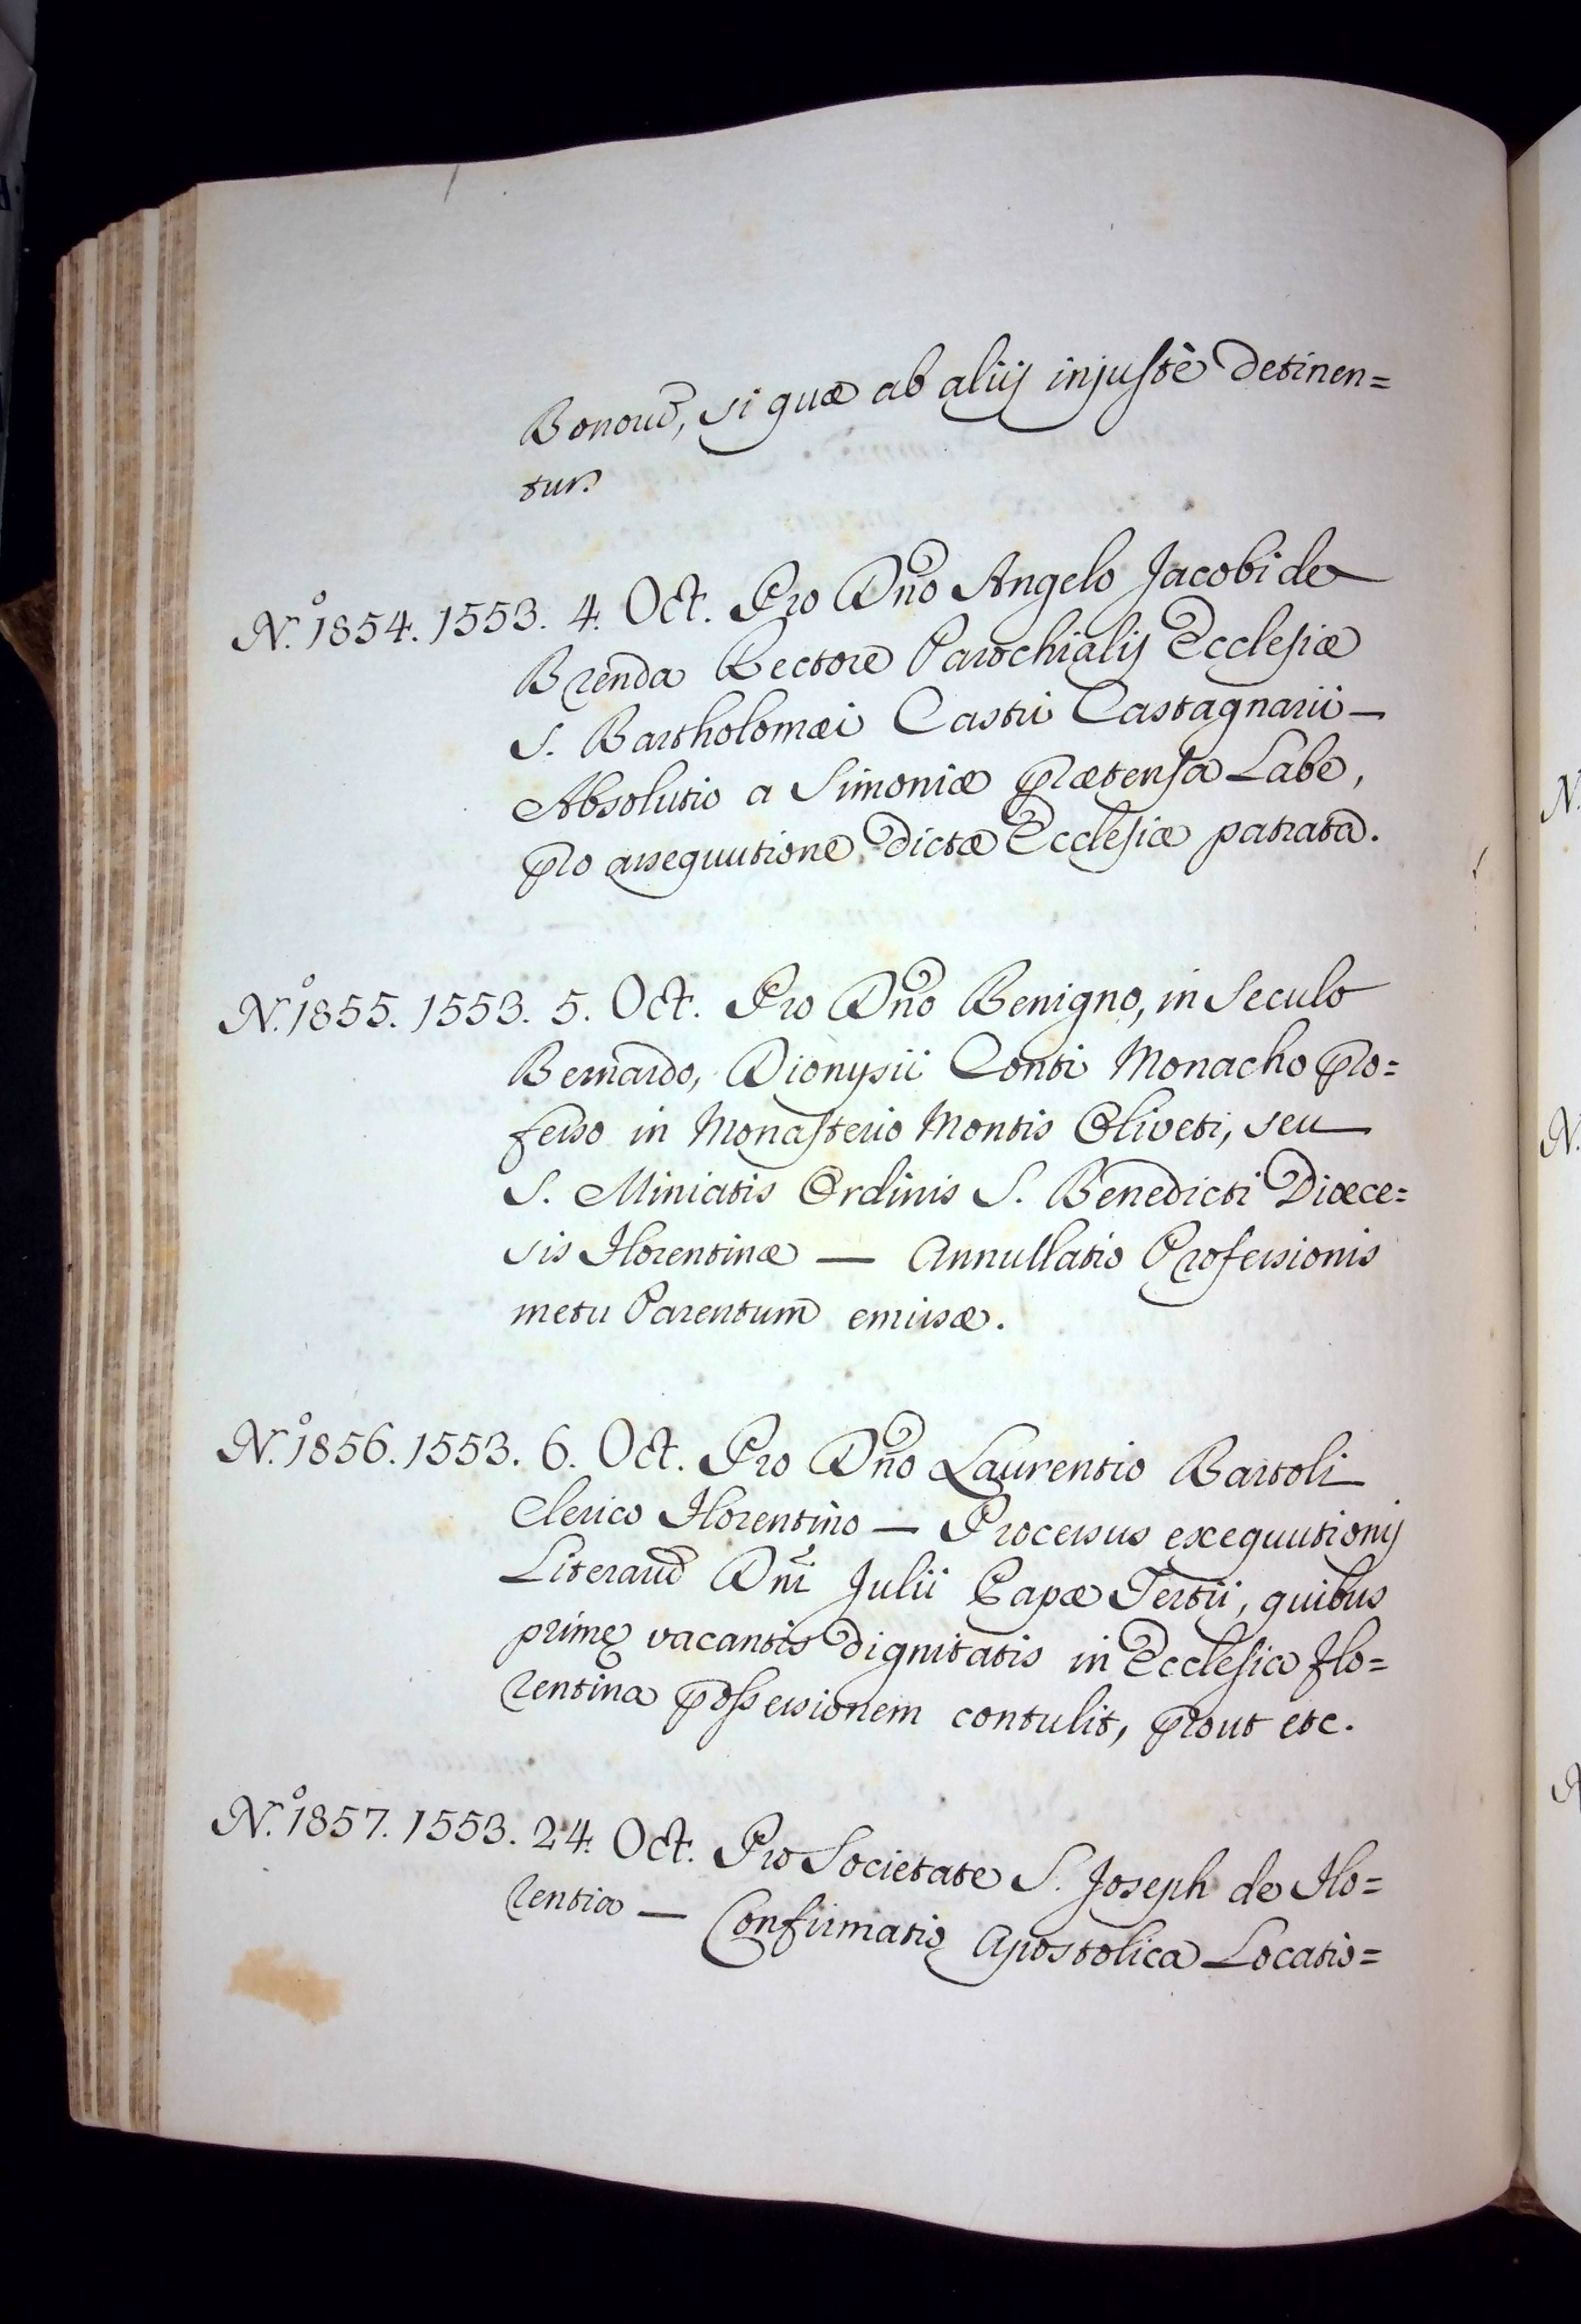 Bonorū, si quæ ab aliis injustè detinen=
tur.
N.º 1854. 1553. 4. Oct. Pro Dño Angelo Jacobi de
Brenda Rectore Parochialis Ecclesiæ
S. Bartholomæi Castri Castagnarii —
Absolutio a Simoniæ prætensa Labe,
pro assequutione dictæ Ecclesiæ patrata.
N.º 1855. 1553. 5. Oct. Pro Dño Benigno, in Seculo
Bernardo, Dionysii Conti Monacho pro=
fesso in Monasterio Montis Oliveti, seu
S. Miniatis Ordinis S. Benedicti Diœce=
sis Florentinæ — Annullatio Professionis
metu Parentum emissæ.
N.º 1856. 1553. 6. Oct. Pro Dño Laurentio Bartoli
Clerico Florentino — Processus exequutionis
Literarū Dñi Julii Papæ Tertii, quibus
primę vacantis dignitatis in Ecclesia Flo=
rentina possessionem contulit, prout etc.
N.º 1857. 1553. 24. Oct. Pro Societate S. Joseph de Flo=
rentia — Confirmatio Apostolica Locatio=